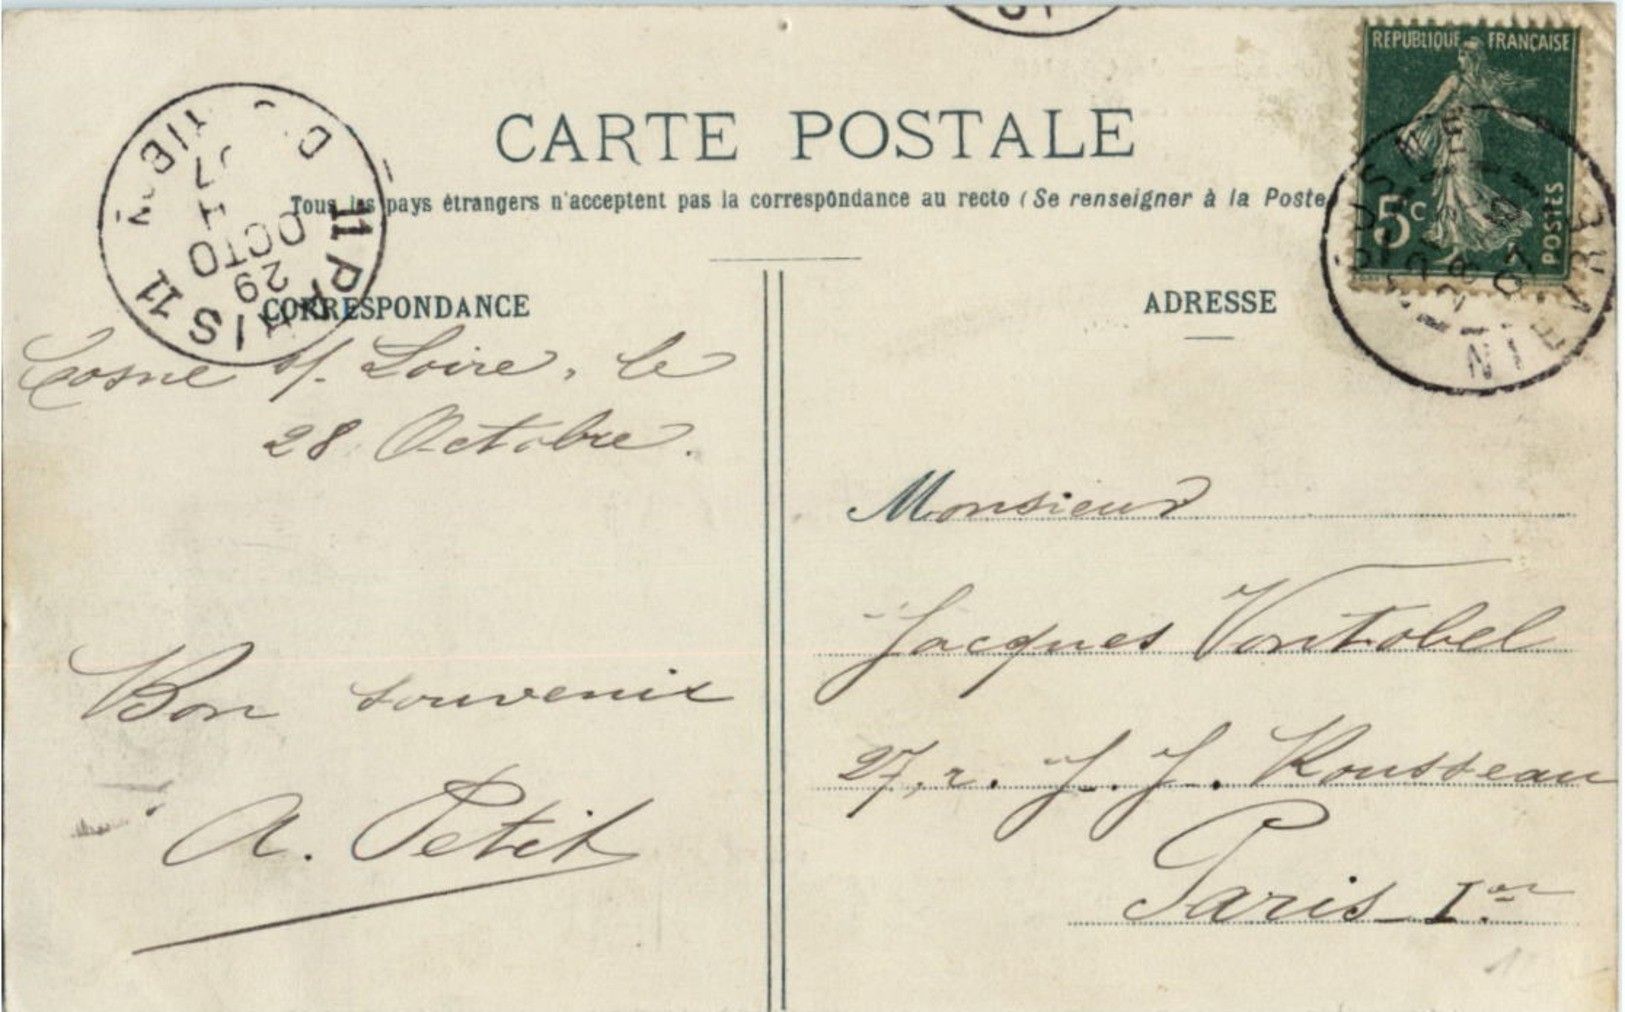 RÉPUBLIQUE FRANÇAISE
5c
POSTES
CARTE POSTALE
Tous les pays étrangers n'acceptent pas la correspondance au recto (Se renseigner à la Poste)
CORRESPONDANCE
Cosne s/. Loire, le
28 Octobre.
Bon souvenir
A. Petit
ADRESSE
Monsieur
Jacques Vontobel
27, r. J. J. Rousseau
Paris I.er
29
OCTO
IS 11
NIEVRE